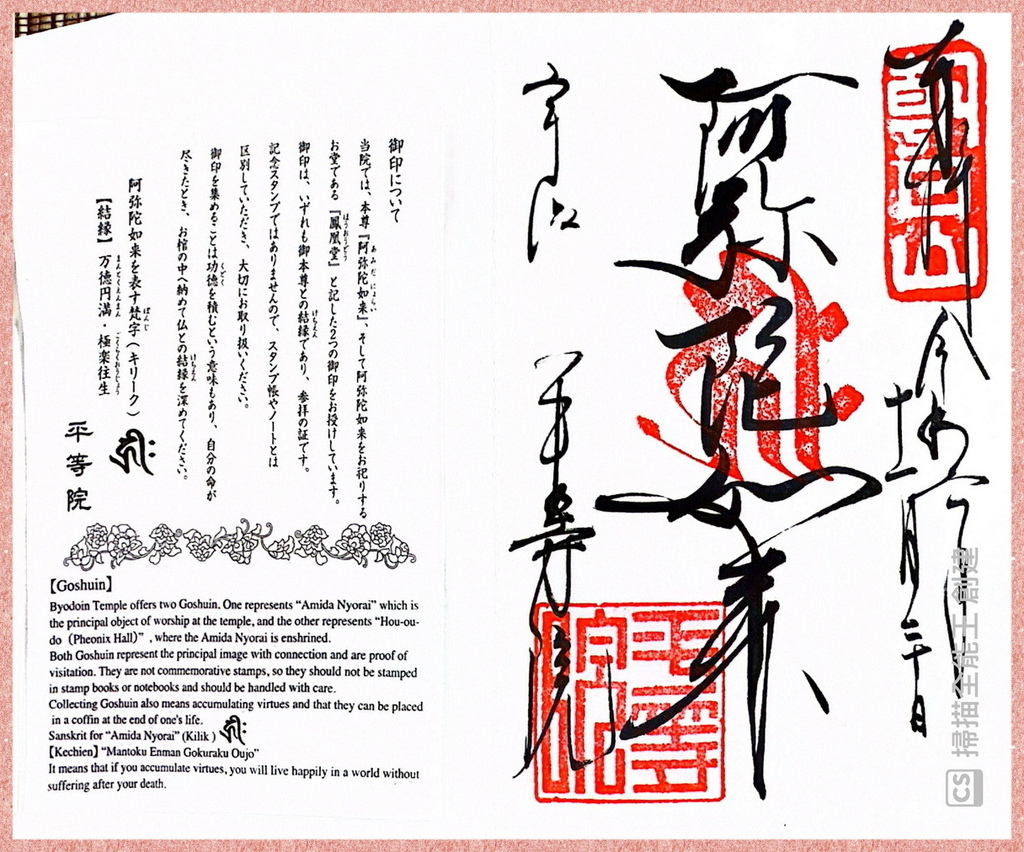 奉拝
令和
十一月
日
阿弥陀如来
宇治
平等院
平等院
御印について
当院では、本尊『阿弥陀如来』、そして阿弥陀如来をお祀りする
お堂である『鳳凰堂』と記した2つの御印をお授けしています。
御印は、いずれも御本尊との結縁であり、参拝の証です。
記念スタンプではありませんので、スタンプ帳やノートとは
区別していただき、大切にお取り扱いください。
御印を集めることは功徳を積むという意味もあり、自分の命が
尽きたとき、お棺の中へ納めて仏との結縁を深めてください。
阿弥陀如来を表す梵字(キリーク)
【結縁】万徳円満・極楽往生
平等院
【Goshuin】
Byodoin Temple offers two Goshuin. One represents "Amida Nyorai" which is
the principal object of worship at the temple, and the other represents "Hou-ou-
do (Pheonix Hall)" , where the Amida Nyorai is enshrined.
Both Goshuin represent the principal image with connection and are proof of
visitation. They are not commemorative stamps, so they should not be stamped
in stamp books or notebooks and should be handled with care.
Collecting Goshuin also means accumulating virtues and that they can be placed
in a coffin at the end of one's life.
Sanskrit for "Amida Nyorai" (Kilik )
【Kechien】"Mantoku Enman Gokuraku Oujo"
It means that if you accumulate virtues, you will live happily in a world without
suffering after your death.
CS 掃描全能王 創建